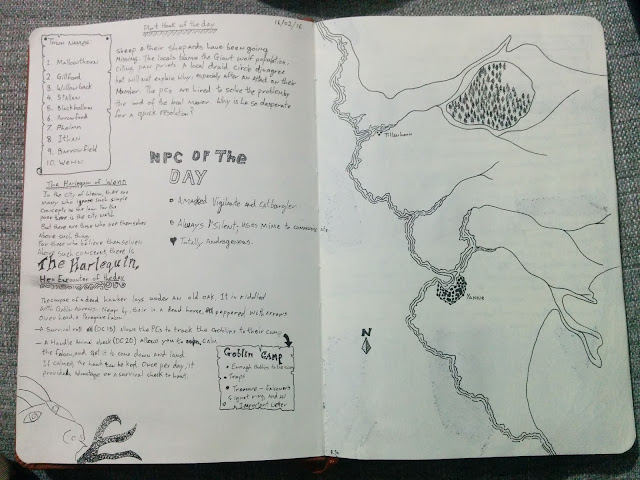 Plot Hook of the day
16/02/16
Town Names
1. Mallowthown
2. Gillfoad
3. Willowback
4. Bislow
5. Blackhollow
6. Arrowford
7. Phelnn
8. Ithan
9. Barrowfield
10. Wenn
Sheep & their shepards have been going
missing. The locals blame the Giant wolf population,
citing paw prints. A local druid circle disagree
but will not explain why, especially after an attack on their
Member. The PCs are hired to solve the problem by
the end of the week. Why is he so desperate
for a quick resolution?
NPC OF THE
DAY
A masked Vigilante and Catbangler
Always Silent, uses Mime to communicate
Totally Androgenous.
The Harlequin of Wenn
In the city of Wenn, there are
many who ignore such simple
concepts as law. For the
there is the city watch
But there are those who see themselves
Above such thing.
For those who believe themselves
Above such concerns there is
The Harlequin
Hex Encounter of the day
The corpse of a dead hawker lays under an old oak. It is riddled
with Goblin Arrows. Near by, their is a dead horse, peppered with arrows
Over head a Peregrine falcon
A Survival roll (DC 15) allows the PCs to track the Goblins to their camp
A Handle Animal check (DC20) allows you to calm
the falcon, and get it to come down and land
If calmed, the hawk can be kept. Once per day, it
provides advantage on a survival check to hunt.
Goblin Camp
Enough Goblins to be
Traps
Treasure - Falconers
Signet ring, and
Important Letter
Tillerhown
N
Yanne